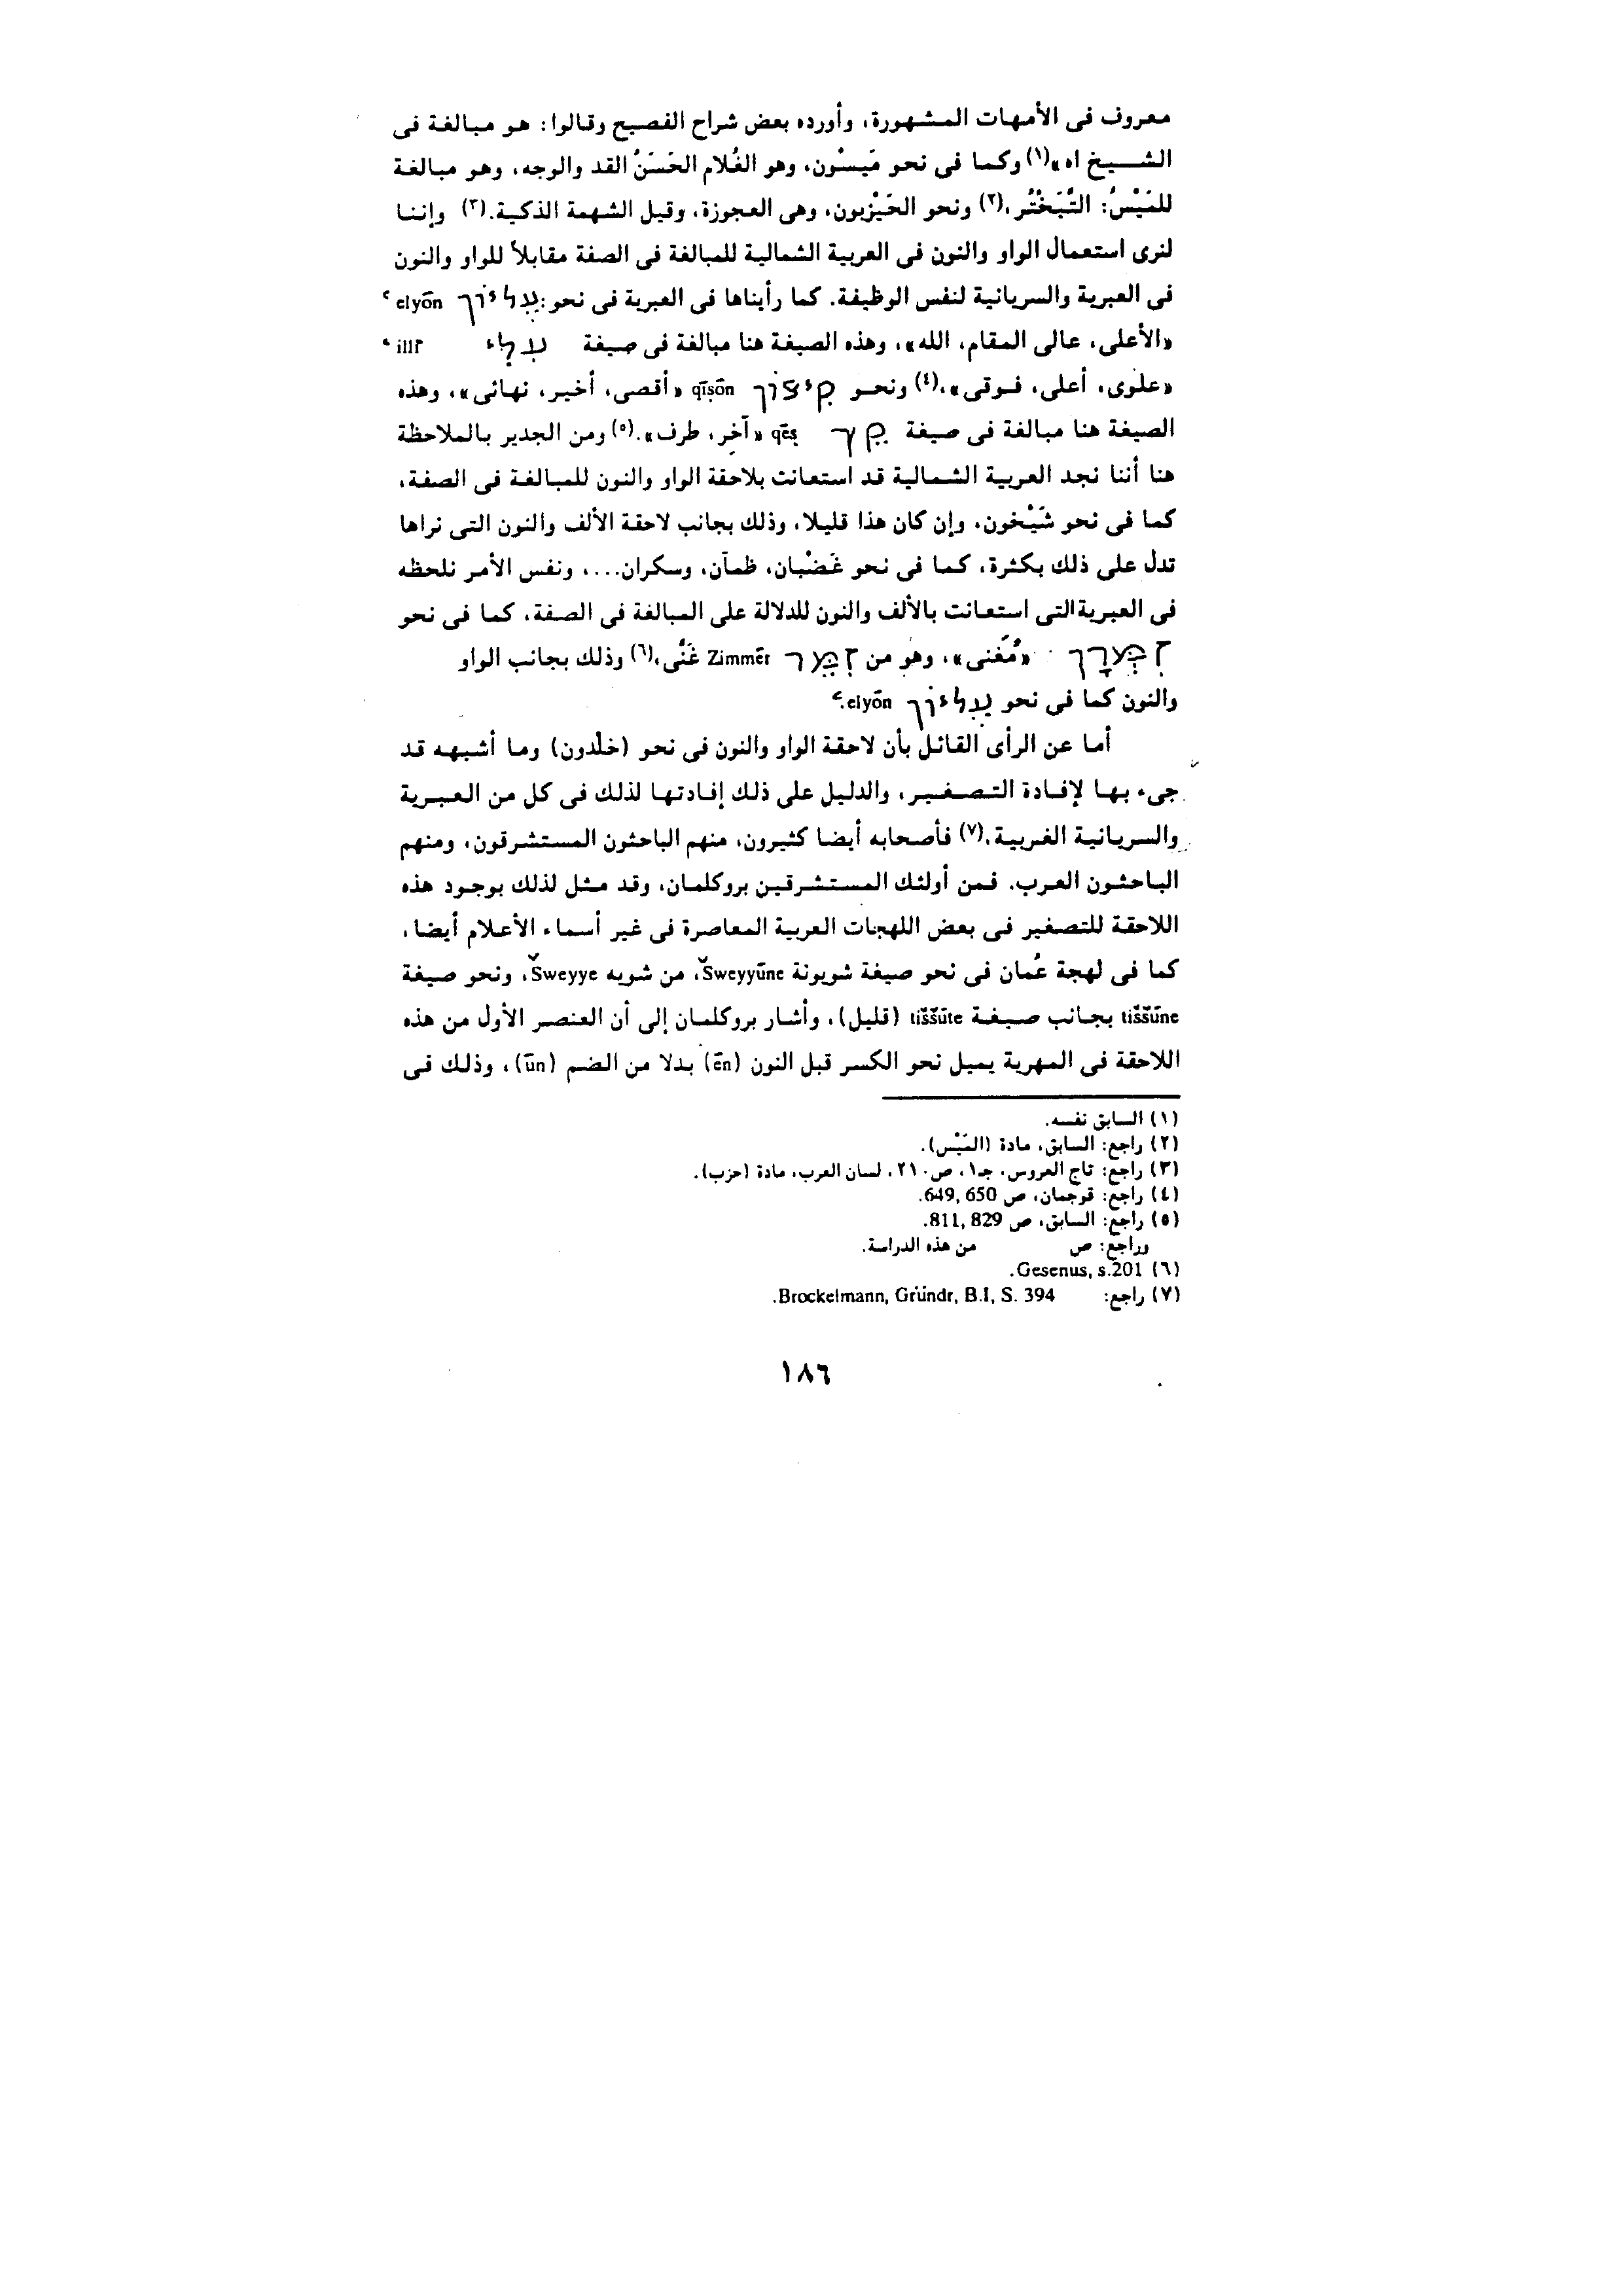 معروف فى الأمهات المشهورة، وأورده بعض شراح الفصيح وقالوا: هو مبالغة فى
الشـــيخ اه»(١) وكما فى نحو مَيسُون، وهو الغُلام الحَسَنُ القد والوجه، وهو مبالغة
للمَيْسُ: التَّبَخْتُر،(٢) ونحو الحَيْزبون، وهى العجوزة، وقيل الشهمة الذكية.(٣) وإننا
لنرى استعمال الواو والنون فى العربية الشمالية للمبالغة فى الصفة مقابلاً للواو والنون
فى العبرية والسريانية لنفس الوظيفة. كما رأيناها فى العبرية فى نحو: עֶלְיוֹן ʿelyōn
«الأعلى، عالى المقام، الله»، وهذه الصيغة هنا مبالغة فى صيغة עִלִּי ʿillī
«علوى، أعلى، فوقى»،(٤) ونحو קִיצוֹן qīṣōn «أقصى، أخير، نهائى»، وهذه
الصيغة هنا مبالغة فى صيغة קֵץ qēṣ «آخر، طرف».(٥) ومن الجدير بالملاحظة
هنا أننا نجد العربية الشمالية قد استعانت بلاحقة الواو والنون للمبالغة فى الصفة،
كما فى نحو شَيْخون، وإن كان هذا قليلا، وذلك بجانب لاحقة الألف والنون التى نراها
تدل على ذلك بكثرة، كما فى نحو غَضْبان، ظمآن، وسكران...، ونفس الأمر نلحظه
فى العبرية التى استعانت بالألف والنون للدلالة على المبالغة فى الصفة، كما فى نحو
זַמָּרָן «مُغنى»، وهو من זִמֵּר Zimmēr غَنَّى،(٦) وذلك بجانب الواو
والنون كما فى نحو עֶלְיוֹן ʿelyōn.
أما عن الرأى القائل بأن لاحقة الواو والنون فى نحو (خلدون) وما أشبهه قد
جىء بها لإفادة التصغير، والدليل على ذلك إفادتها لذلك فى كل من العبرية
والسريانية الغربية،(٧) فأصحابه أيضا كثيرون، منهم الباحثون المستشرقون، ومنهم
الباحثون العرب. فمن أولئك المستشرقين بروكلمان، وقد مثل لذلك بوجود هذه
اللاحقة للتصغير فى بعض اللهجات العربية المعاصرة فى غير أسماء الأعلام أيضا،
كما فى لهجة عُمان فى نحو صيغة شويونة Šweyyūne، من شويه Šweyye، ونحو صيغة
tiššūne بجانب صيغة tiššūte (قليل)، وأشار بروكلمان إلى أن العنصر الأول من هذه
اللاحقة فى المهرية يميل نحو الكسر قبل النون (ēn) بدلا من الضم (ūn)، وذلك فى
(١) السابق نفسه.
(٢) راجع: السابق، مادة (المَيْس).
(٣) راجع: تاج العروس، جـ١، ص٢١٠، لسان العرب، مادة (حزب).
(٤) راجع: قوجمان، ص 650 ,649.
(٥) راجع: السابق، ص 829 ,811.
وراجع: ص من هذه الدراسة.
(٦) Gesenus, s.201.
(٧) راجع: Brockelmann, Gründr, B.I, S. 394.
١٨٦